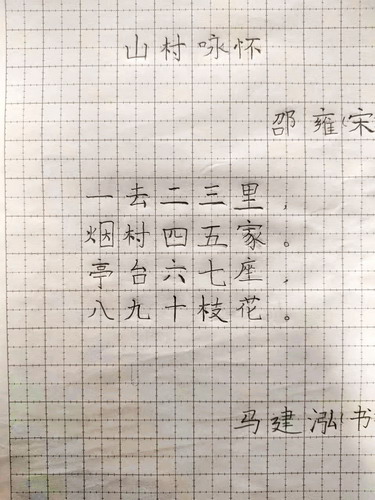 山村咏怀
邵雍(宋
一去二三里，
烟村四五家。
亭台六七座，
八九十枝花。
马建泓书